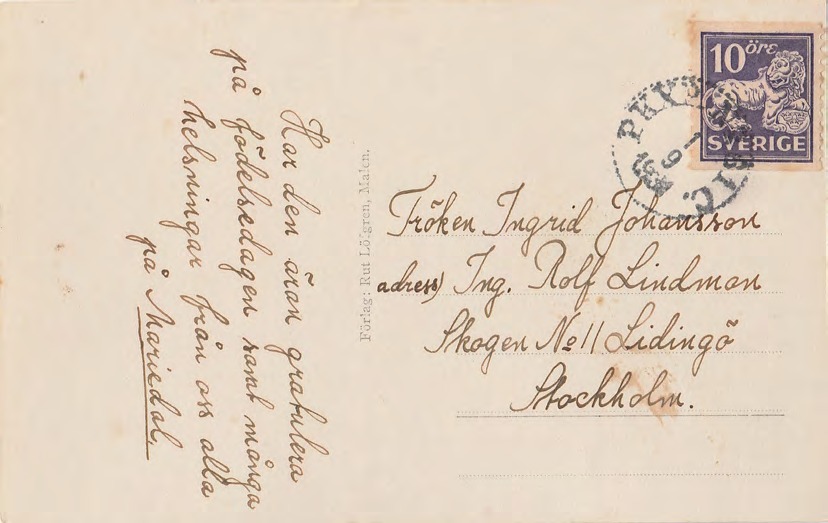 Har den äran gratulera
på födelsedagen samt många
helsningar från oss alla
på Mariedal.
Förlag: Rut Löfgren, Malen.
10 öre
SVERIGE
Fröken Ingrid Johansson
adress) Ing. Rolf Lindman
Skogen No 11 Lidingö
Stockholm.